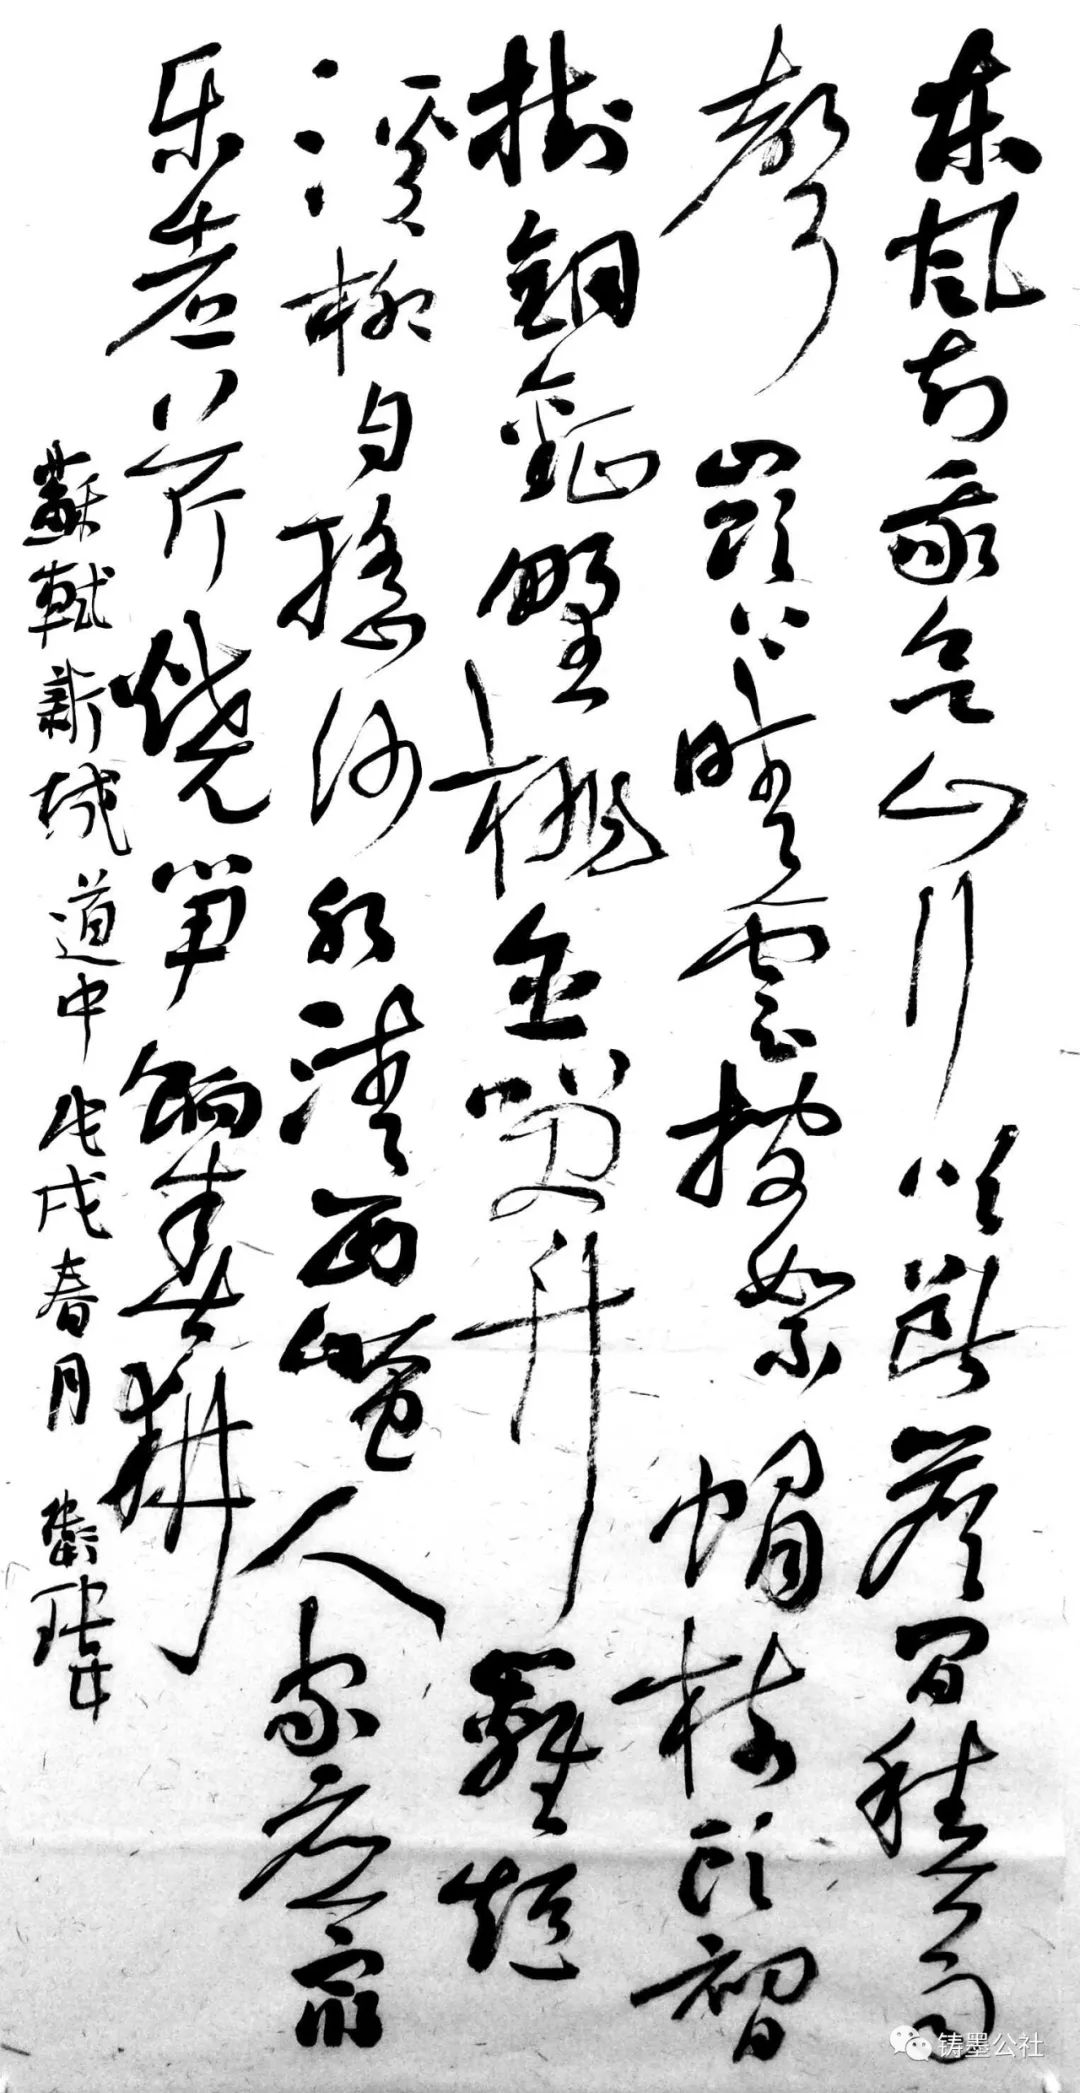 東風知我欲山行吹斷簷間積雨
聲嶺上晴雲披絮帽樹頭初日
掛銅鉦野桃含笑竹籬短
溪柳自搖沙水清西崦人家應最
乐煮芹燒笋餉春耕
蘇軾新城道中戊戌春月
铸墨公社